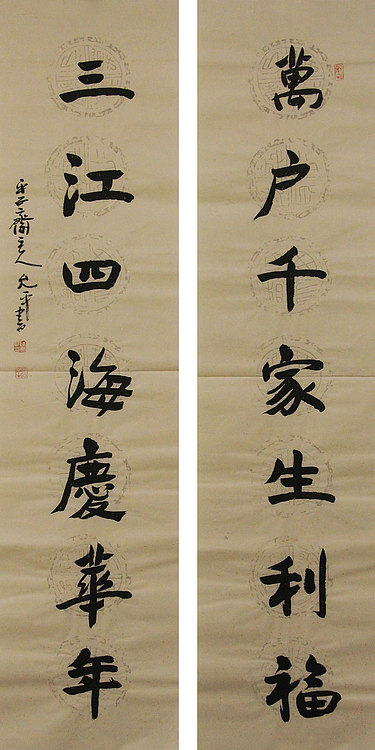 萬户千家生利福
三江四海慶華年
齋主人 允平書